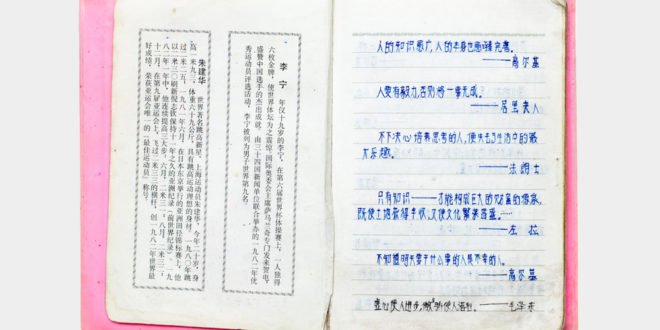 李 宁 年仅十九岁的李宁，在第六届世界杯体操赛上，一人独得
六枚金牌，使世界体坛为之震惊。国际奥委会主席萨马兰奇专门发来贺电，
盛赞中国选手的杰出成就。由三十四国新闻单位联合举办的一九八二年优
秀运动员评选活动，李宁被列为男子世界第九名。
朱建华 世界著名跳高新星，上海运动员朱建华，今年二十岁，身
高一米九三，体重六十九公斤，具有跳高运动理想的身材。一九八〇年跳
过二米二五，一九八一年六月，在日本东京举行的亚洲田径锦标赛上，他
以二米三〇刷新倪志钦保持十一年之久的亚洲纪录（前世界纪录）。一九
八二年中，他连续提高三大步，六月，二米三一，八月，二米三二，
十二月，在第九届亚运会上，飞过二米三三的横杆，创一九八二年世界最
好成绩，荣获亚运会唯一的「最佳运动员」称号。
人的知识愈广，人的本身也愈臻完善。
——高尔基
人要有毅力，否则将一事无成。
——居里夫人
不下决心培养思考的人，便失去了生活中的最
大乐趣。
——爱迪生
只有知识——才能构成巨大的财富的源泉，
既使土地获得丰收，又使文化繁荣昌盛。
——左拉
不知道明天要干什么事的人是不幸的人。
——高尔基
虚心使人进步，骄傲使人落后。——毛泽东